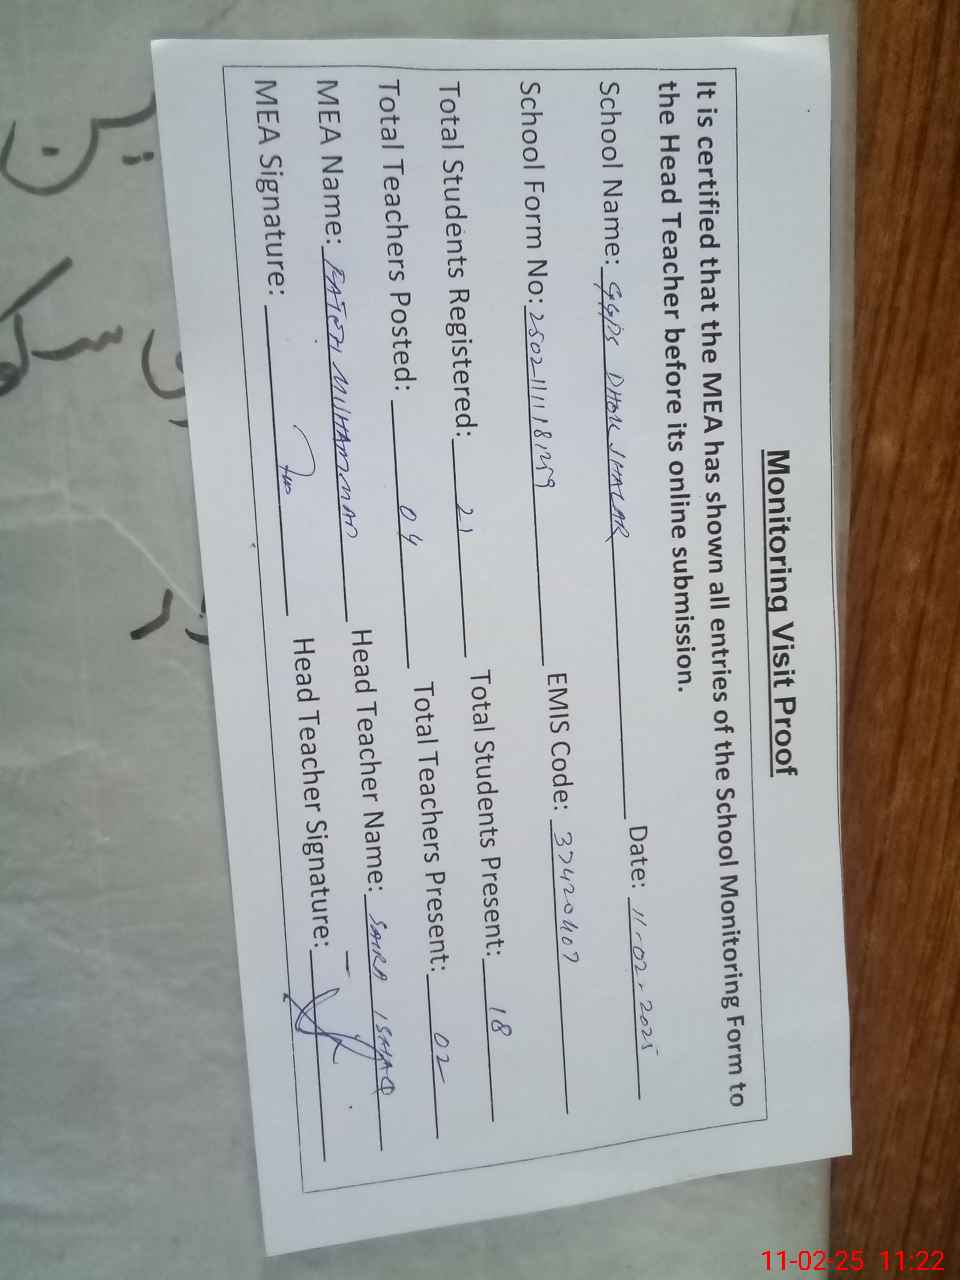 Monitoring Visit Proof
It is certified that the MEA has shown all entries of the School Monitoring Form to
the Head Teacher before its online submission.
School Name: GGPS DHOK JHALAR Date: 11-02-2025
School Form No: EMIS Code: 37420407
Total Students Registered: 21 Total Students Present: 18
Total Teachers Posted: 04 Total Teachers Present: 02
MEA Name: FATEH MUHAMMAD Head Teacher Name: SAIRA ISHAQ
MEA Signature: Head Teacher Signature:
11-02-25 11:22